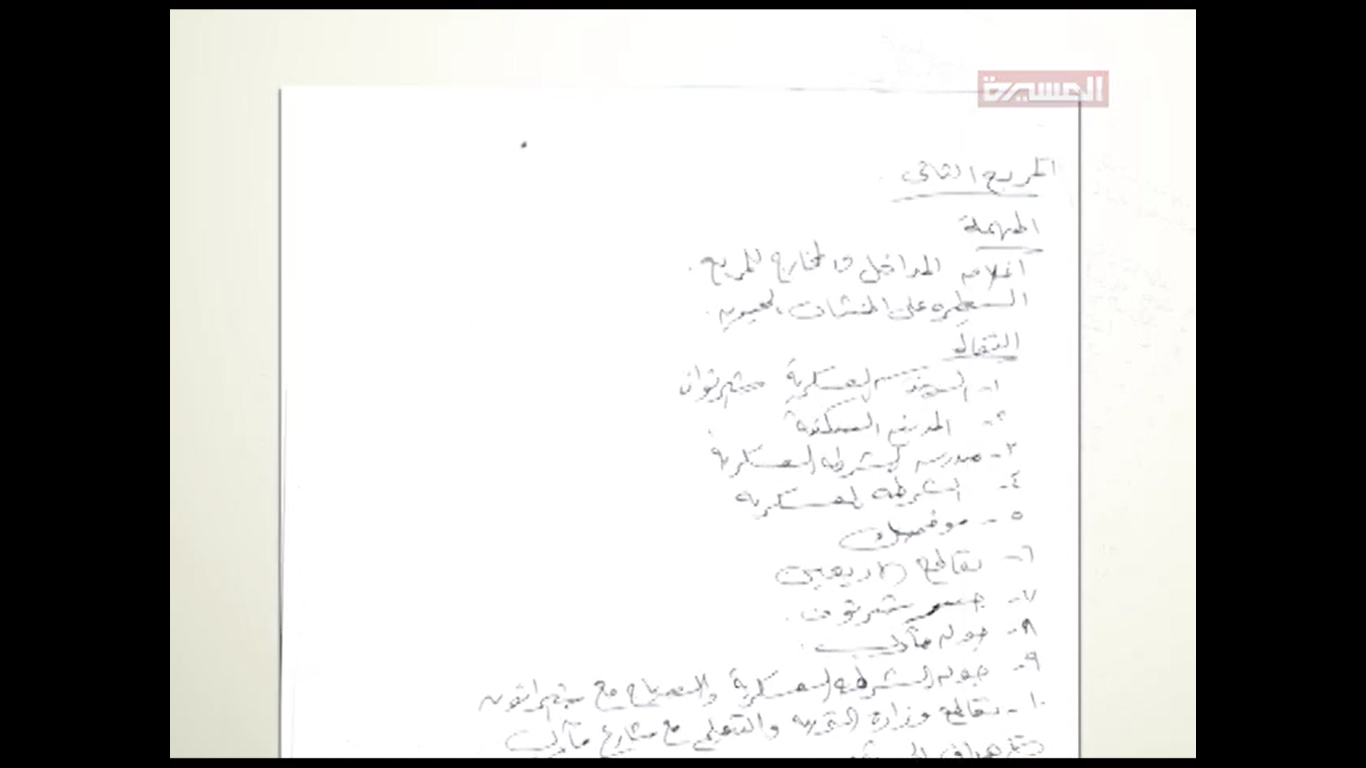 المسيرة
المربع الثاني
المهمة
اغلاق المداخل والمخارج للمربع.
السيطره على المنشات الحيويه.
النقاط
١- السجن العسكرية شيراتون
٢- المدينه السكنيه
٣- مدرسه الشرطه العسكرية
٤- الشرطه العسكريه
٥- موفمبيك
٦- تقاطع الاربعين
٧- جسر شيراتون.
٨- جوله مأرب.
٩- جوله الشرطه العسكرية والصباح مع شيراتون
١٠- تقاطع وزارة التربيه والتعليم مع شارع مأرب